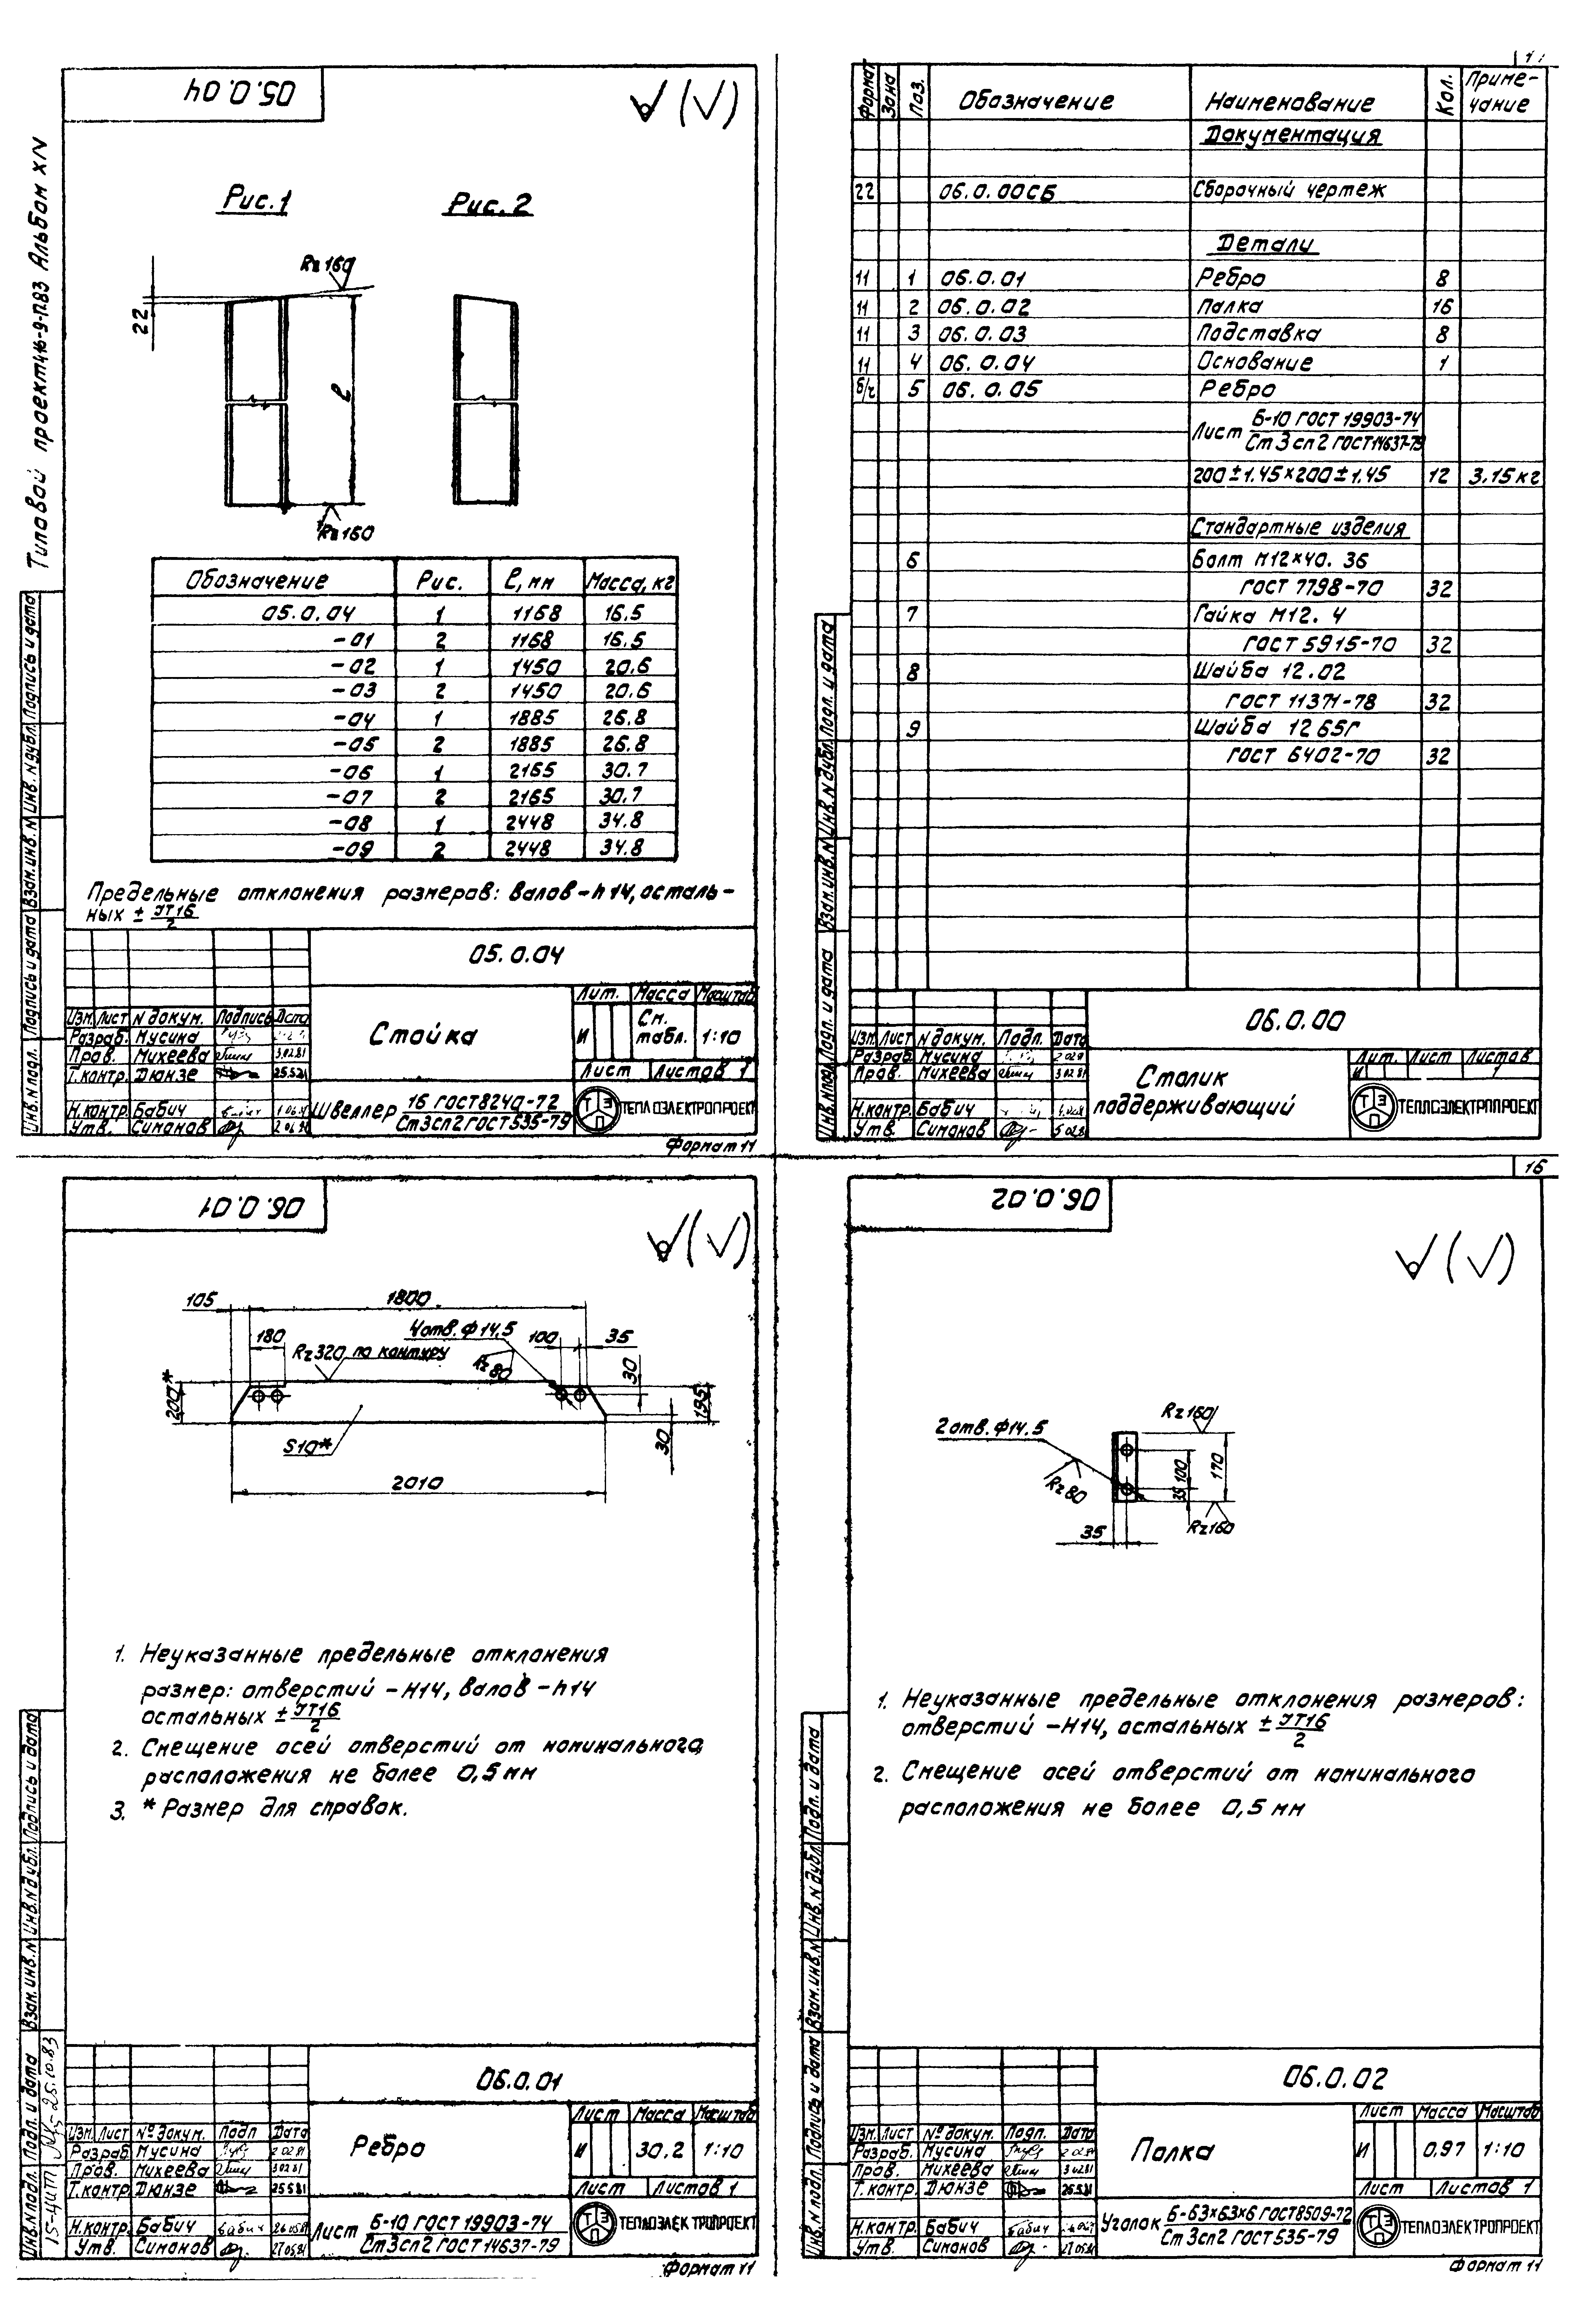 Типовой проект 416-9-17.83 Альбом XIV
05.0.04
Рис.1
Рис.2
Rz 160
22
ℓ
Rz 160
Обозначение Рис. ℓ, мм Масса, кг
05.0.04 1 1168 16.5
-01 2 1168 16.5
-02 1 1450 20.6
-03 2 1450 20.6
-04 1 1885 26.8
-05 2 1885 26.8
-06 1 2165 30.7
-07 2 2165 30.7
-08 1 2448 34.8
-09 2 2448 34.8
Предельные отклонения размеров: валов-h14, осталь-
ных ± IT16/2
05.0.04
Лит. Масса Масштаб
Изм. Лист N докум. Подпись Дата
Разраб. Мусина
Пров. Михеева 3.02.81
Т.контр. Дюнзе 25.5.81
Н.контр. Бабич
Утв. Симонов
Стойка
И См. табл. 1:10
Лист Листов 1
Швеллер 16 ГОСТ 8240-72
Ст3сп2 ГОСТ 535-79
ТЭП ТЕПЛОЭЛЕКТРОПРОЕКТ
Формат 11
Инв.N подл. Подпись и дата Взам.инв.N Инв.N дубл. Подпись и дата
Формат Зона Поз. Обозначение Наименование Кол. Приме-
чание
Документация
22 06.0.00СБ Сборочный чертеж
Детали
11 1 06.0.01 Ребро 8
11 2 06.0.02 Полка 16
11 3 06.0.03 Подставка 8
11 4 06.0.04 Основание 1
б/ч 5 06.0.05 Ребро
Лист Б-10 ГОСТ 19903-74
Ст3сп2 ГОСТ 14637-79
200±1.45×200±1.45 12 3.15кг
Стандартные изделия
6 Болт М12×40.36
ГОСТ 7798-70 32
7 Гайка М12.4
ГОСТ 5915-70 32
8 Шайба 12.02
ГОСТ 11371-78 32
9 Шайба 12 65Г
ГОСТ 6402-70 32
06.0.00
Изм. Лист N докум. Подп. Дата
Разраб. Мусина
Пров. Михеева 3.02.81
Н.контр. Бабич
Утв. Симонов
Столик
поддерживающий
Лит. Лист Листов
И 1
ТЭП ТЕПЛОЭЛЕКТРОПРОЕКТ
Инв.N подл. Подп. и дата Взам.инв.N Инв.N дубл. Подп. и дата
06.0.01
105 1800
180 4 отв. ф14.5 100 35
Rz 320 по контуру
Rz 80
30
200*
195
S10*
30
2010
1. Неуказанные предельные отклонения
размер: отверстий -H14, валов -h14
остальных ± IT16/2
2. Смещение осей отверстий от номинального
расположения не более 0,5 мм
3. * Размер для справок.
06.0.01
Лист Масса Масштаб
Изм. Лист № докум. Подп Дата
Разраб. Мусина
Пров. Михеева 3.02.81
Т.контр. Дюнзе 25.5.81
Н.контр. Бабич 26.05.81
Утв. Симонов 27.05.81
Ребро
И 30.2 1:10
Лист Листов 1
Лист Б-10 ГОСТ 19903-74
Ст3сп2 ГОСТ 14637-79
ТЭП ТЕПЛОЭЛЕКТРОПРОЕКТ
Формат 11
Инв.N подл. Подп. и дата Взам.инв.N Инв.N дубл. Подпись и дата
25.10.83
16
06.0.02
2 отв. ф14.5
Rz 80
Rz 160
35 100 170
Rz 160
35
1. Неуказанные предельные отклонения размеров:
отверстий -H14, остальных ± IT16/2
2. Смещение осей отверстий от номинального
расположения не более 0,5 мм
06.0.02
Лист Масса Масштаб
Изм. Лист № докум. Подп. Дата
Разраб. Мусина
Пров. Михеева 3.02.81
Т.контр. Дюнзе 25.5.81
Н.контр. Бабич
Утв. Симонов 27.05.81
Полка
И 0.97 1:10
Лист Листов 1
Уголок Б-63×63×6 ГОСТ 8509-72
Ст3сп2 ГОСТ 535-79
ТЭП ТЕПЛОЭЛЕКТРОПРОЕКТ
Формат 11
Инв.N подл. Подпись и дата Взам.инв.N Инв.N дубл. Подп. и дата